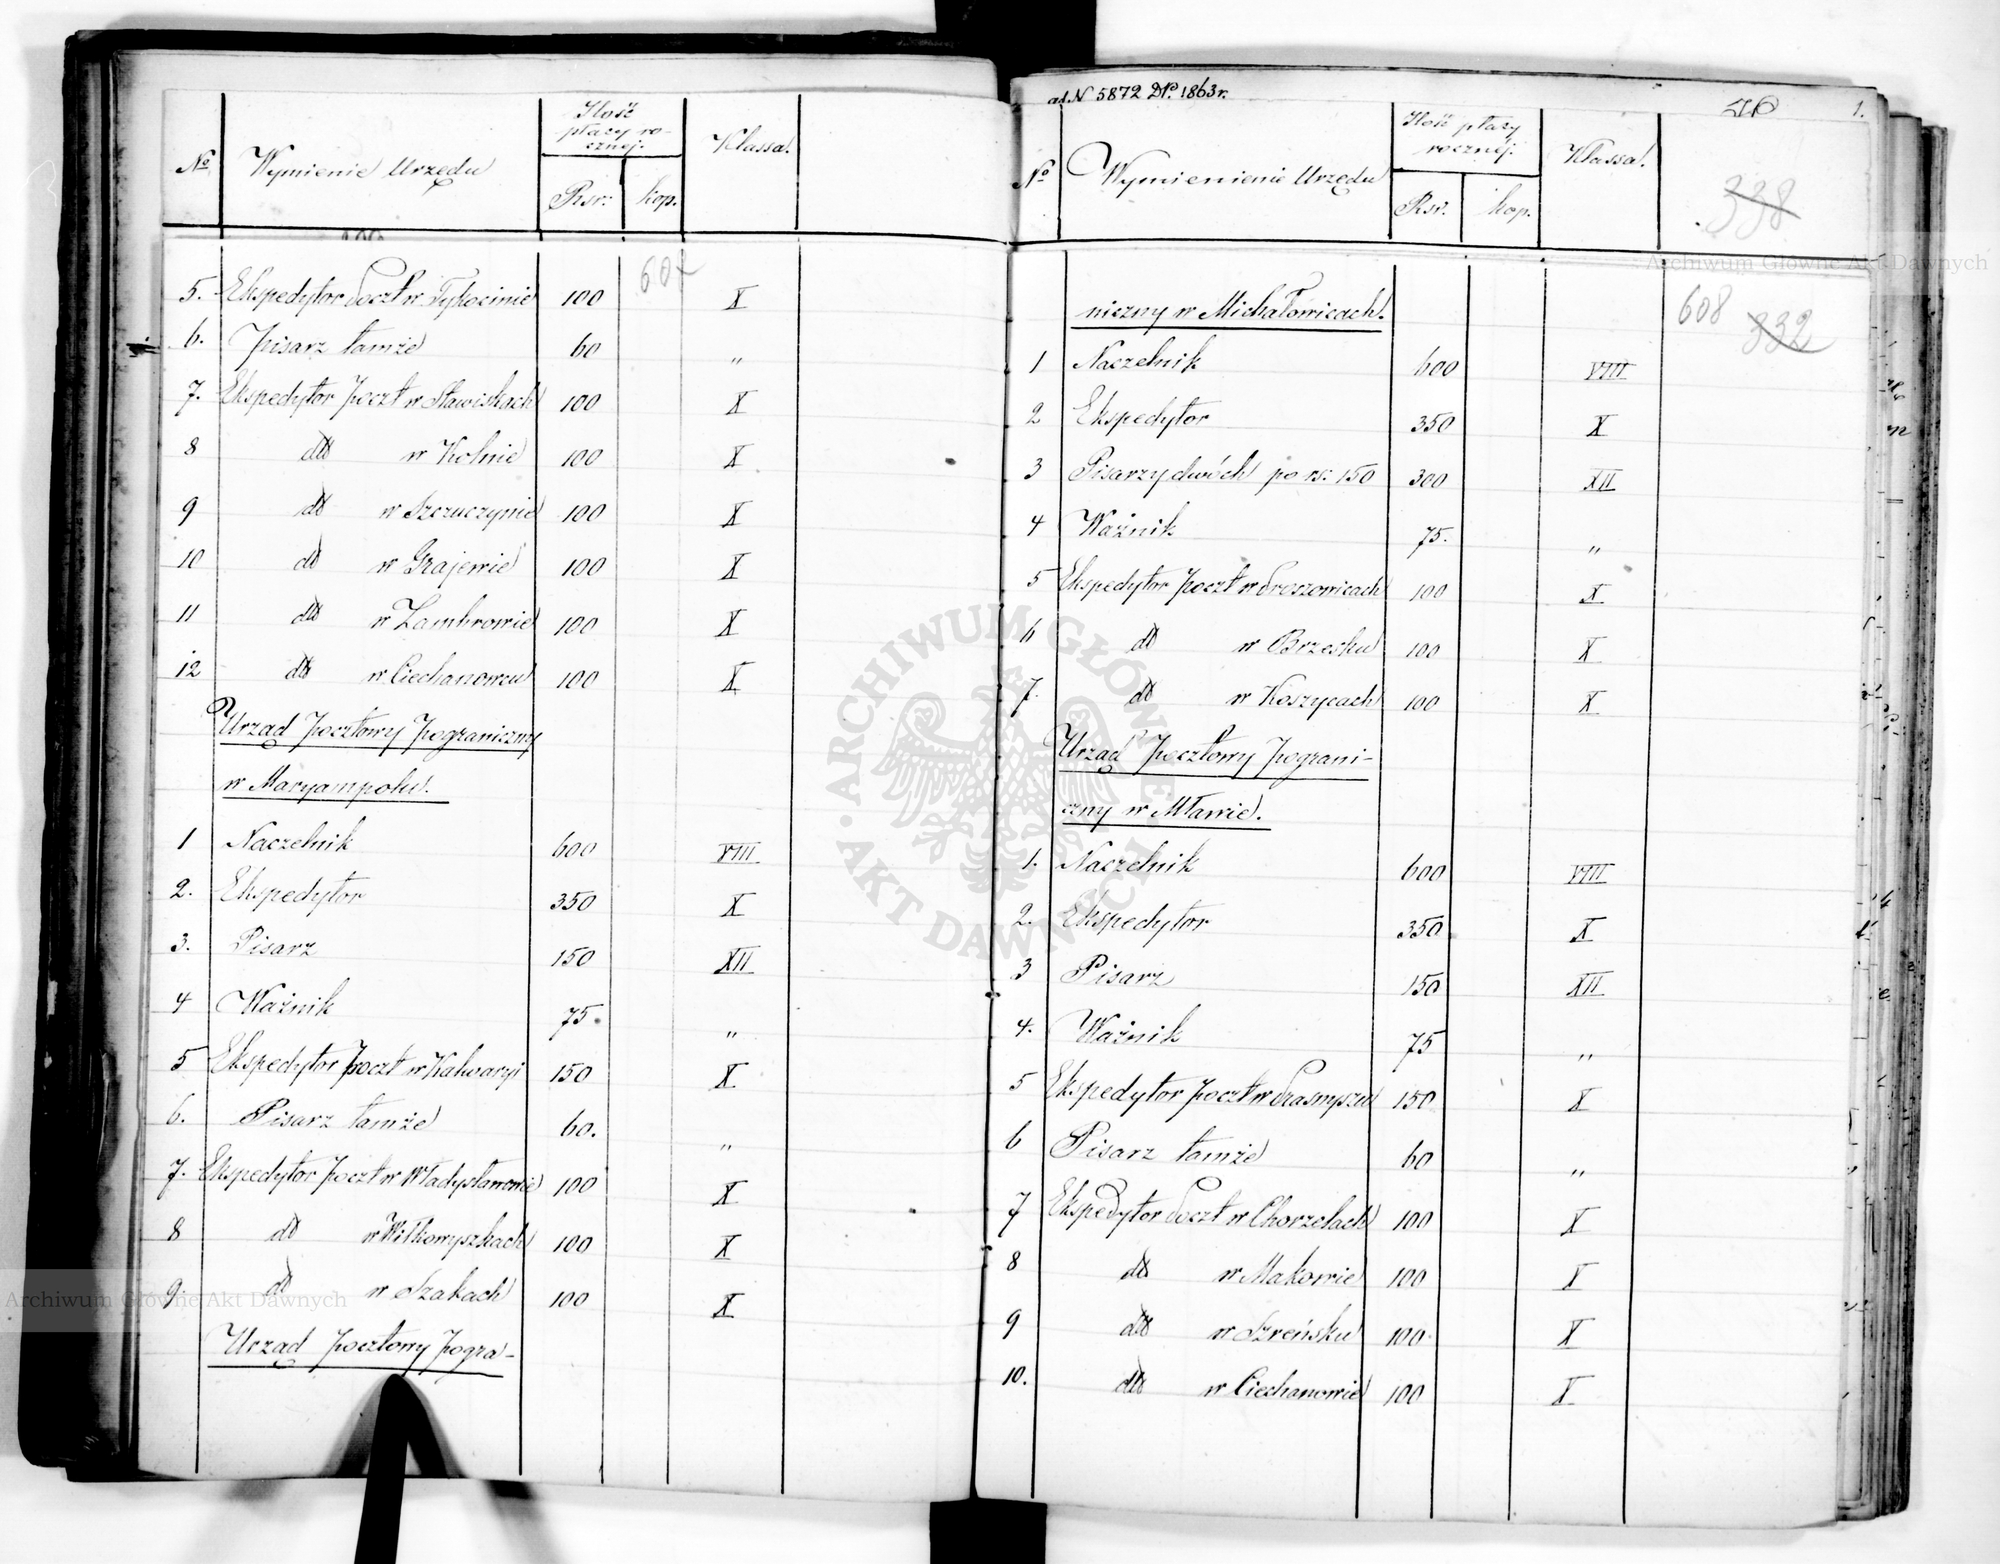 № Wymienie Urzędu Ilość płacy rocznéj. Klassa.
Rsr: kop.
607
5. Ekspedytor Poczt w Tykocinie 100 X
6. Pisarz tamże 60 "
7. Ekspedytor poczt w Stawiskach 100 X
8 dto w Kolnie 100 X
9 dto w Szczuczynie 100 X
10 dto w Grajewie 100 X
11 dto w Zambrowie 100 X
12 dto w Ciechanowcu 100 X
Urząd pocztowy pograniczny
w Maryampolu.
1 Naczelnik 600 VIII
2. Ekspedytor 350 X
3. Pisarz 150 XII
4 Ważnik 75. "
5 Ekspedytor poczt w Kalwaryi 150 X
6. Pisarz tamże 60. "
7. Ekspedytor poczt w Władysławowie 100 X
8 dto w Wiłkowyszkach 100 X
9. dto w Szakach 100 X
Urząd pocztowy pogra-
ad N 5872 DP. 1863 r.
46 1.
№ Wymienienie Urzędu Ilość płacy rocznéj. Klassa.
Rsr. kop.
338
608 332
niczny w Michałowicach.
1 Naczelnik 600 VIII
2 Ekspedytor 350 X
3 Pisarzy dwóch po rs: 150 300 XII
4 Ważnik 75. "
5 Ekspedytor poczt w Proszowicach 100 X
6 dto w Brzesku 100 X
7. dto w Koszycach 100 X
Urząd pocztowy pograni-
czny w Mławie.
1. Naczelnik 600 VIII
2. Ekspedytor 350 X
3 Pisarz 150 XII
4. Ważnik 75 "
5 Ekspedytor poczt w Prasnyszu 150 X
6 Pisarz tamże 60 "
7 Ekspedytor Poczt w Chorzelach 100 X
8 dto w Makowie 100 X
9 dto w Szreńsku 100 X
10. dto w Ciechanowie 100 X
ARCHIWUM GŁÓWNE AKT DAWNYCH
Archiwum Główne Akt Dawnych
Archiwum Główne Akt Dawnych